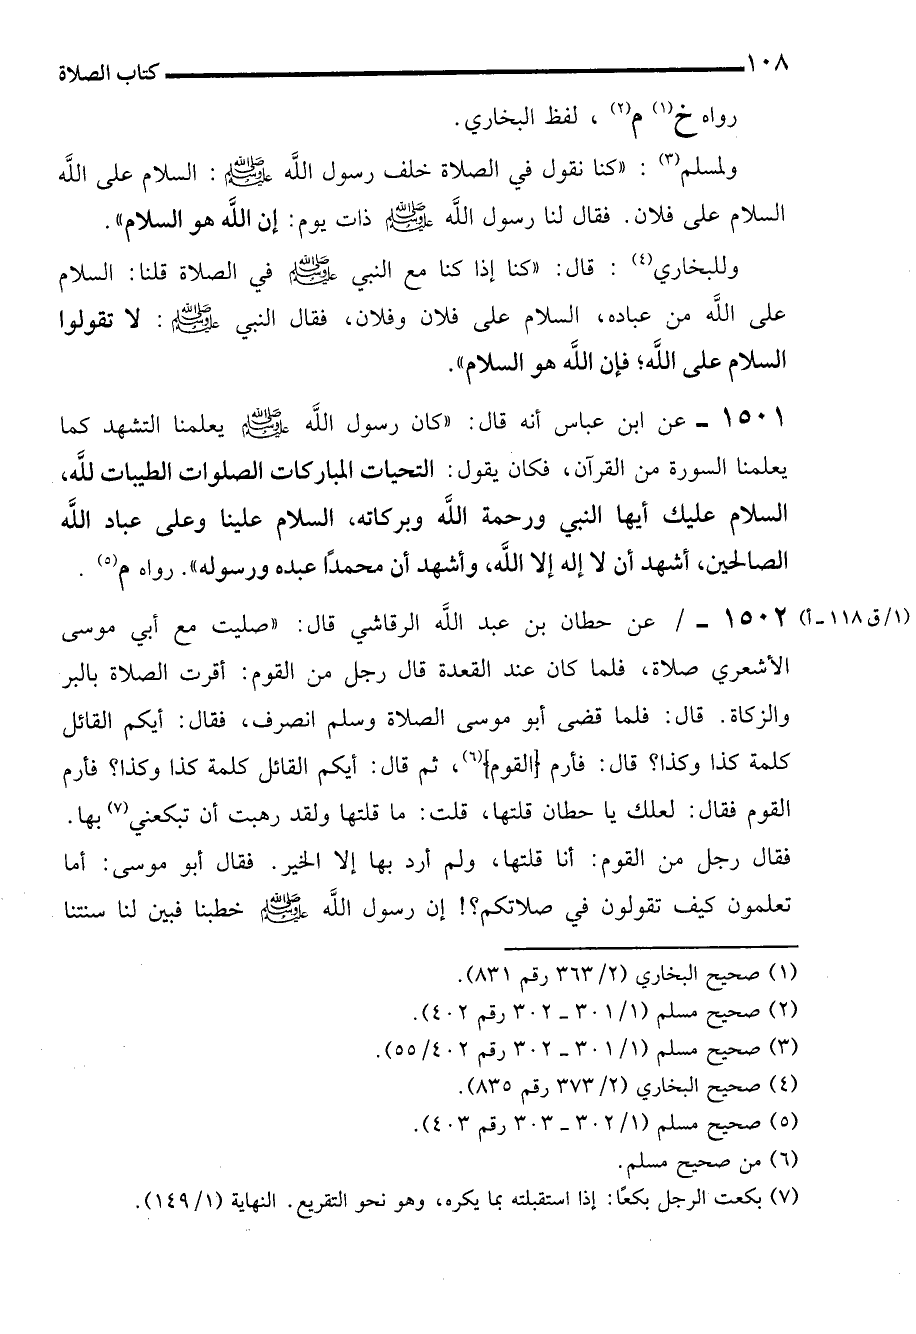 ١٠٨ كتاب الصلاة
رواه خ(١) م(٢) ، لفظ البخاري.
ولمسلم(٣) : «كنا نقول في الصلاة خلف رسول اللَّه ﷺ : السلام على اللَّه
السلام على فلان. فقال لنا رسول اللَّه ﷺ ذات يوم: إن اللَّه هو السلام».
وللبخاري(٤) : قال: «كنا إذا كنا مع النبي ﷺ في الصلاة قلنا: السلام
على اللَّه من عباده، السلام على فلان وفلان، فقال النبي ﷺ : لا تقولوا
السلام على اللَّه؛ فإن اللَّه هو السلام».
١٥٠١ ـ عن ابن عباس أنه قال: «كان رسول اللَّه ﷺ يعلمنا التشهد كما
يعلمنا السورة من القرآن، فكان يقول: التحيات المباركات الصلوات الطيبات للَّه،
السلام عليك أيها النبي ورحمة اللَّه وبركاته، السلام علينا وعلى عباد اللَّه
الصالحين، أشهد أن لا إله إلا اللَّه، وأشهد أن محمدًا عبده ورسوله». رواه م(٥) .
(١/ق١١٨ـأ) ١٥٠٢ ـ / عن حطان بن عبد اللَّه الرقاشي قال: «صليت مع أبي موسى
الأشعري صلاة، فلما كان عند القعدة قال رجل من القوم: أقرت الصلاة بالبر
والزكاة. قال: فلما قضى أبو موسى الصلاة وسلم انصرف، فقال: أيكم القائل
كلمة كذا وكذا؟ قال: فأرم {القوم}(٦)، ثم قال: أيكم القائل كلمة كذا وكذا؟ فأرم
القوم فقال: لعلك يا حطان قلتها، قلت: ما قلتها ولقد رهبت أن تبكعني(٧) بها.
فقال رجل من القوم: أنا قلتها، ولم أرد بها إلا الخير. فقال أبو موسى: أما
تعلمون كيف تقولون في صلاتكم؟! إن رسول اللَّه ﷺ خطبنا فبين لنا سنتنا
(١) صحيح البخاري (٢/ ٣٦٣ رقم ٨٣١).
(٢) صحيح مسلم (١/ ٣٠١ ـ ٣٠٢ رقم ٤٠٢).
(٣) صحيح مسلم (١/ ٣٠١ ـ ٣٠٢ رقم ٤٠٢/ ٥٥).
(٤) صحيح البخاري (٢/ ٣٧٣ رقم ٨٣٥).
(٥) صحيح مسلم (١/ ٣٠٢ ـ ٣٠٣ رقم ٤٠٣).
(٦) من صحيح مسلم.
(٧) بكعت الرجل بكعًا: إذا استقبلته بما يكره، وهو نحو التقريع. النهاية (١/ ١٤٩).